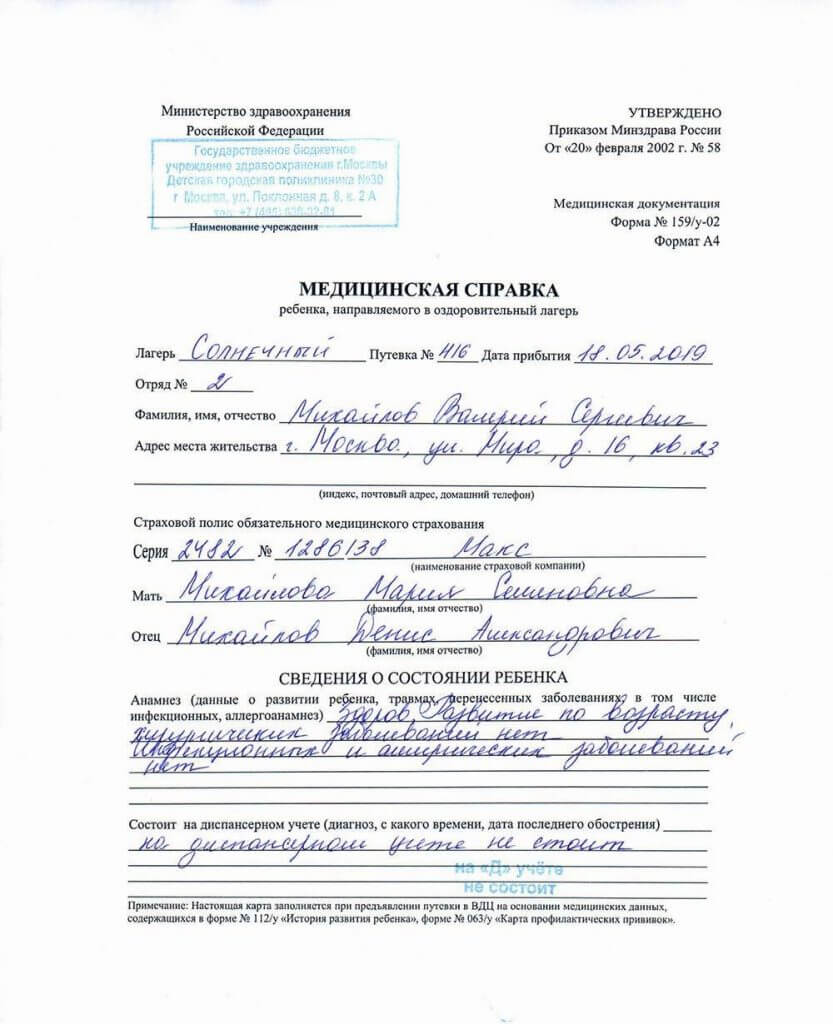 Министерство здравоохранения
Российской Федерации
Государственное бюджетное
учреждение здравоохранения г.Москвы
Детская городская поликлиника №30
г Москва, ул. Поклонная д. 8, к. 2 А
Наименование учреждения
УТВЕРЖДЕНО
Приказом Минздрава России
От «20» февраля 2002 г. № 58
Медицинская документация
Форма № 159/у-02
Формат А4
МЕДИЦИНСКАЯ СПРАВКА
ребенка, направляемого в оздоровительный лагерь
Лагерь Солнечный Путевка № 416 Дата прибытия 18.05.2019
Отряд № 2
Фамилия, имя, отчество Михайлов Валерий Сергеевич
Адрес места жительства г. Москва, ул. Мира, д. 16, кв. 23
(индекс, почтовый адрес, домашний телефон)
Страховой полис обязательного медицинского страхования
Серия 2482 № 1286138 Макс
(наименование страховой компании)
Мать Михайлова Мария Семеновна
(фамилия, имя отчество)
Отец Михайлов Денис Александрович
(фамилия, имя отчество)
СВЕДЕНИЯ О СОСТОЯНИИ РЕБЕНКА
Анамнез (данные о развитии ребенка, травмах, перенесенных заболеваниях, в том числе
инфекционных, аллергоанамнез) Здоров, Развитие по возрасту,
хирургических заболеваний нет
Инфекционных и аллергических заболеваний
нет
Состоит на диспансерном учете (диагноз, с какого времени, дата последнего обострения)
на диспансерном учете не стоит
на «Д» учёте
не состоит
Примечание: Настоящая карта заполняется при предъявлении путевки в ВДЦ на основании медицинских данных,
содержащихся в форме № 112/у «История развития ребенка», форме № 063/у «Карта профилактических прививок».